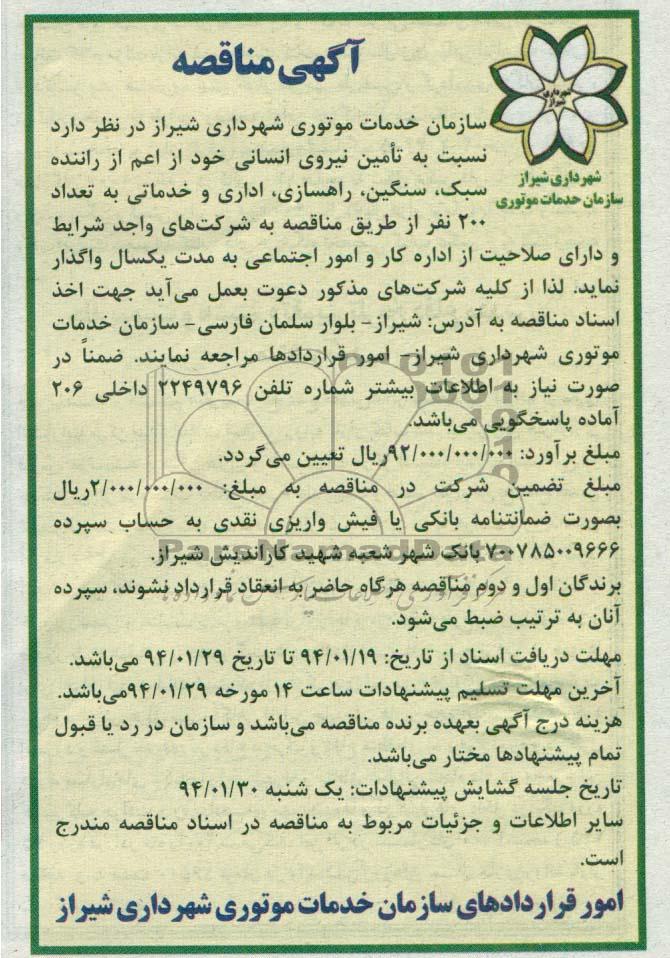 آگهی مناقصه
شهرداری شیراز
شهرداری شیراز
سازمان خدمات موتوری
سازمان خدمات موتوری شهرداری شیراز در نظر دارد
نسبت به تأمین نیروی انسانی خود از اعم از راننده
سبک، سنگین، راهسازی، اداری و خدماتی به تعداد
۲۰۰ نفر از طریق مناقصه به شرکت‌های واجد شرایط
و دارای صلاحیت از اداره کار و امور اجتماعی به مدت یکسال واگذار
نماید. لذا از کلیه شرکت‌های مذکور دعوت بعمل می‌آید جهت اخذ
اسناد مناقصه به آدرس: شیراز- بلوار سلمان فارسی- سازمان خدمات
موتوری شهرداری شیراز- امور قراردادها مراجعه نمایند. ضمناً در
صورت نیاز به اطلاعات بیشتر شماره تلفن ۲۲۴۹۷۹۶ داخلی ۲۰۶
آماده پاسخگویی می‌باشد.
مبلغ برآورد: ۹۲/۰۰۰/۰۰۰/۰۰۰ریال تعیین می‌گردد.
مبلغ تضمین شرکت در مناقصه به مبلغ: ۲/۰۰۰/۰۰۰/۰۰۰ریال
بصورت ضمانتنامه بانکی یا فیش واریزی نقدی به حساب سپرده
۷۰۰۷۸۵۰۰۹۶۶۶ بانک شهر شعبه شهید کاراندیش شیراز.
برندگان اول و دوم مناقصه هرگاه حاضر به انعقاد قرارداد نشوند، سپرده
آنان به ترتیب ضبط می‌شود.
مهلت دریافت اسناد از تاریخ: ۹۴/۰۱/۱۹ تا تاریخ ۹۴/۰۱/۲۹ می‌باشد.
آخرین مهلت تسلیم پیشنهادات ساعت ۱۴ مورخه ۹۴/۰۱/۲۹می‌باشد.
هزینه درج آگهی بعهده برنده مناقصه می‌باشد و سازمان در رد یا قبول
تمام پیشنهادها مختار می‌باشد.
تاریخ جلسه گشایش پیشنهادات: یک شنبه ۹۴/۰۱/۳۰
سایر اطلاعات و جزئیات مربوط به مناقصه در اسناد مناقصه مندرج
است.
امور قراردادهای سازمان خدمات موتوری شهرداری شیراز
ParsNamadData